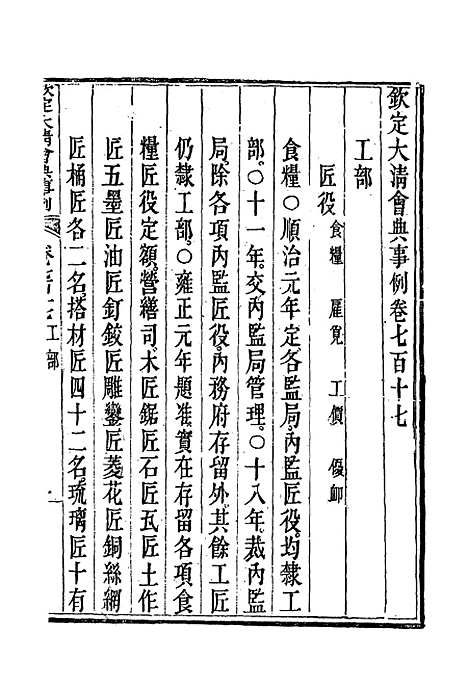 欽定大清會典事例卷七百十七
工部
匠役 食糧 雇覓 工價 優卹
食糧○順治元年定各監局內監匠役均隸工
部○十一年交內監局管理○十八年裁內監
局除各項內監匠役內務府存留外其餘工匠
仍隸工部○雍正元年題准實在存留各項食
糧匠役定額營繕司木匠鋸匠石匠瓦匠土作
匠五墨匠油匠釘鉸匠雕鑾匠菱花匠銅絲網
匠桶匠各二名搭材匠四十二名琉璃匠十有
欽定大清會典事例 卷七百十七 工部 一